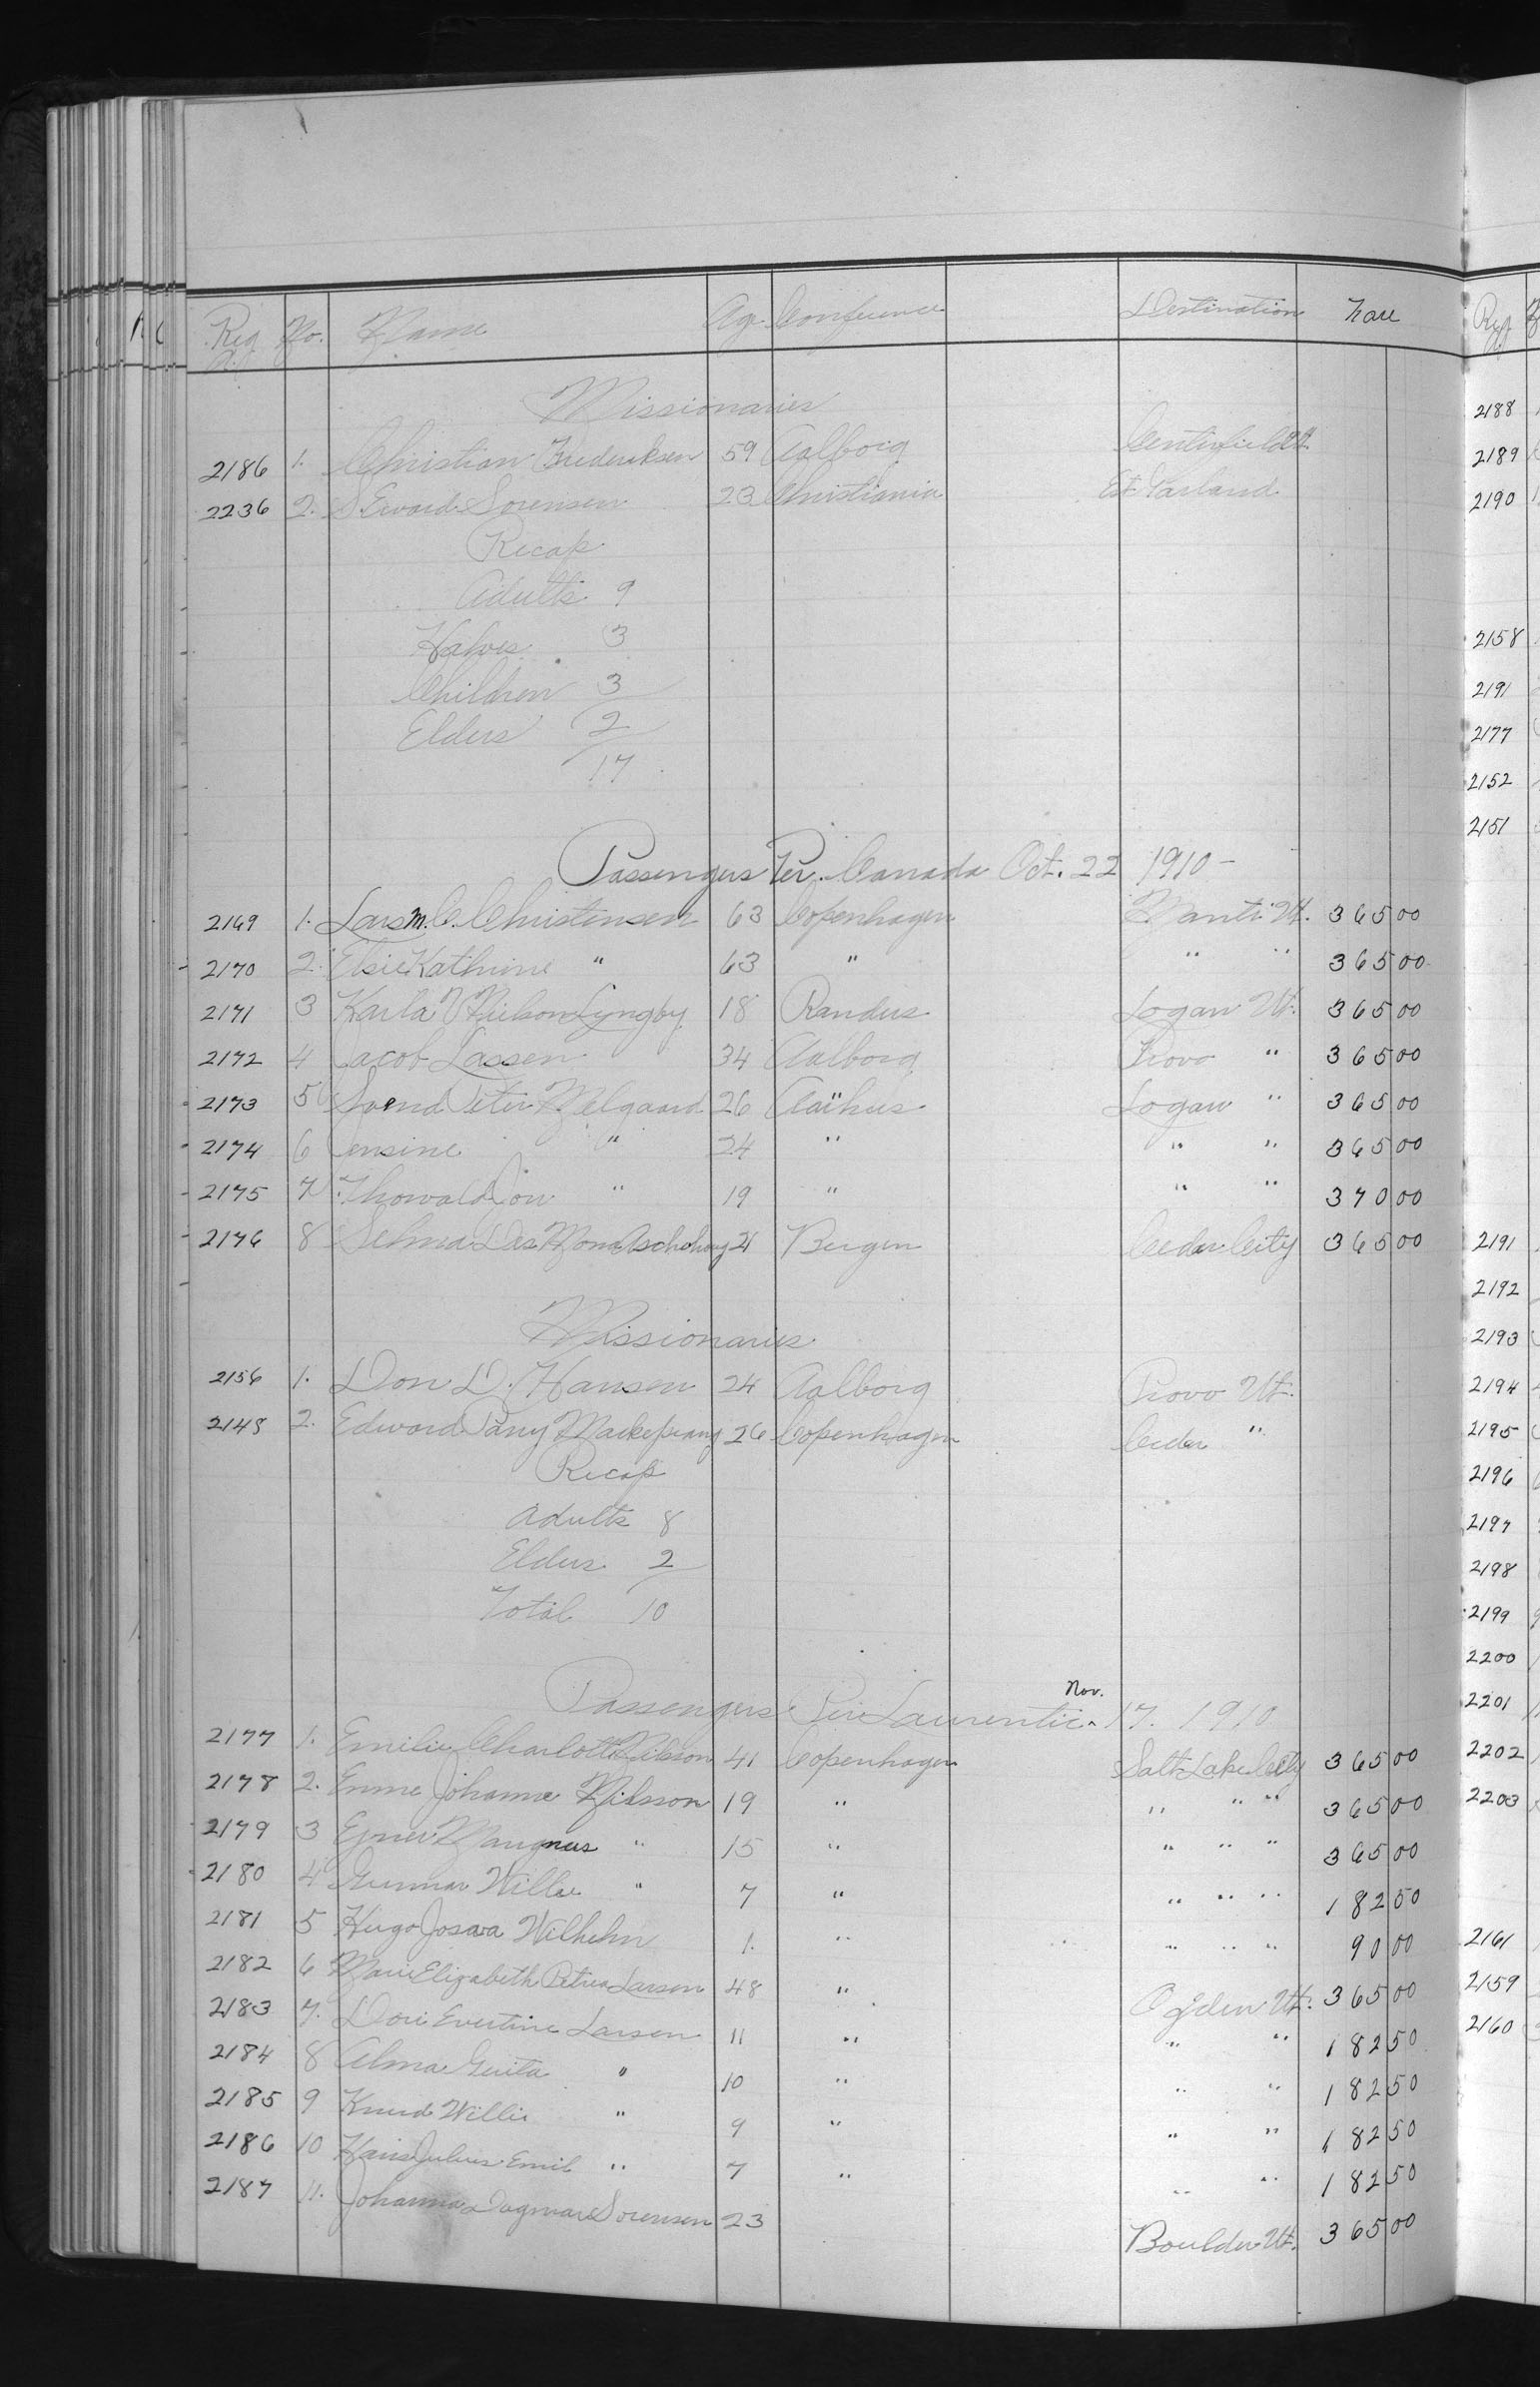 Reg. No. Name Age Conference Destination Fare
Missionaries
2186 1. Christian Frederiksen 59 Aalborg Centerfield Ut
2236 2. S. Edward Sorensen 23 Christiania Est Garland
Recap
Adults 9
Halves 3
Children 3
Elders 2
17
Passengers Per. Canada Oct. 22 1910 -
2169 1. Lars M. C. Christensen 63 Copenhagen Manti Ut. 365 00
2170 2. Elsie Kathrine " 63 " " " 365 00
2171 3 Karla V Nielson Lyngby 18 Randers Logan Ut. 365 00
2172 4 Jacob Lassen 34 Aalborg Provo " 365 00
2173 5 Svend Peter Melgaard 26 Aarhus Logan " 365 00
2174 6 Jensine " 24 " " " 365 00
2175 7 Thorvald Jon " 19 " " " 370 00
2176 8 Selma 21 Bergen Cedar City 365 00
Missionaries
2156 1. Don D. Hansen 24 Aalborg Provo Ut.
2148 2. Edward Parry Mackeprang 26 Copenhagen Cedar "
Recap
Adults 8
Elders 2
Total 10
Passengers Per Laurentic. Nov. 17. 1910
2177 1. Emilie Charlotte Nilsson 41 Copenhagen Salt Lake City 365 00
2178 2. Emme Johanne Nilsson 19 " " " " 365 00
2179 3 Ejner Mangnus " 15 " " " " 365 00
2180 4 Gunnar Willie " 7 " " " " 182 50
2181 5 Hugo Josava Wilhelm 1. " " " " 90 00
2182 6 Marie Elizabeth Petrea Larson 48 " Ogden Ut. 365 00
2183 7. Dori Evertine Larsen 11 " " " 182 50
2184 8 Alma Gerita " 10 " " " 182 50
2185 9 Knud Willie " 9 " " " 182 50
2186 10 Hans Julius Emil " 7 " " " 182 50
2187 11. Johanna Dagmar Sorensen 23 Boulder Ut. 365 00
Reg
2188
2189
2190
2158
2191
2177
2152
2151
2191
2192
2193
2194
2195
2196
2197
2198
2199
2200
2201
2202
2203
2161
2159
2160